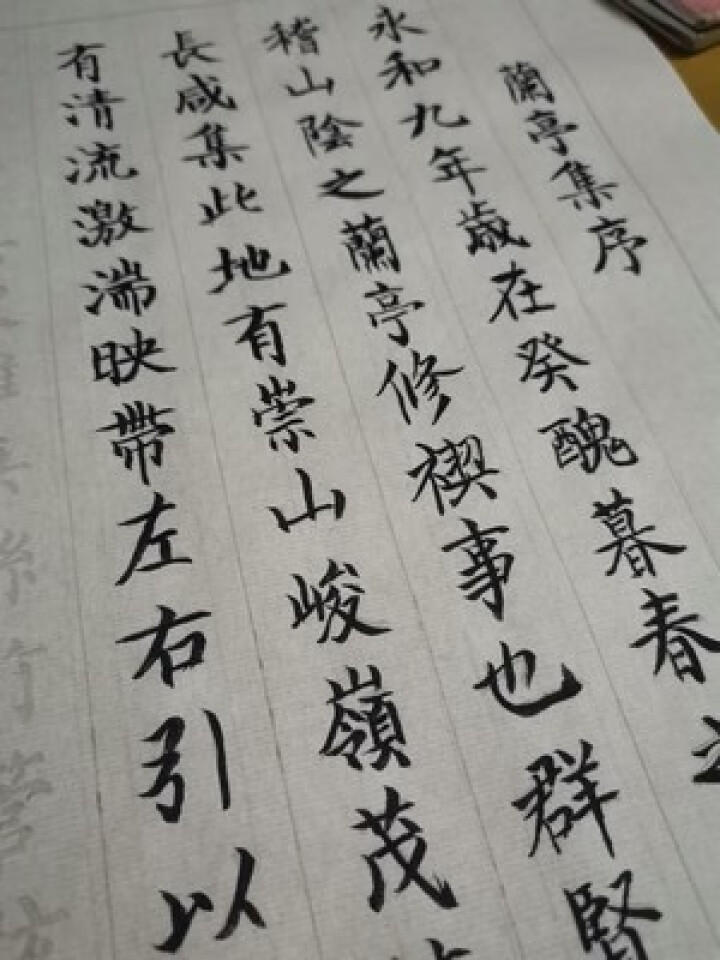 蘭亭集序
永和九年歲在癸醜暮春之
稽山陰之蘭亭修禊事也群賢
長咸集此地有崇山峻嶺茂
有清流激湍映帶左右引以